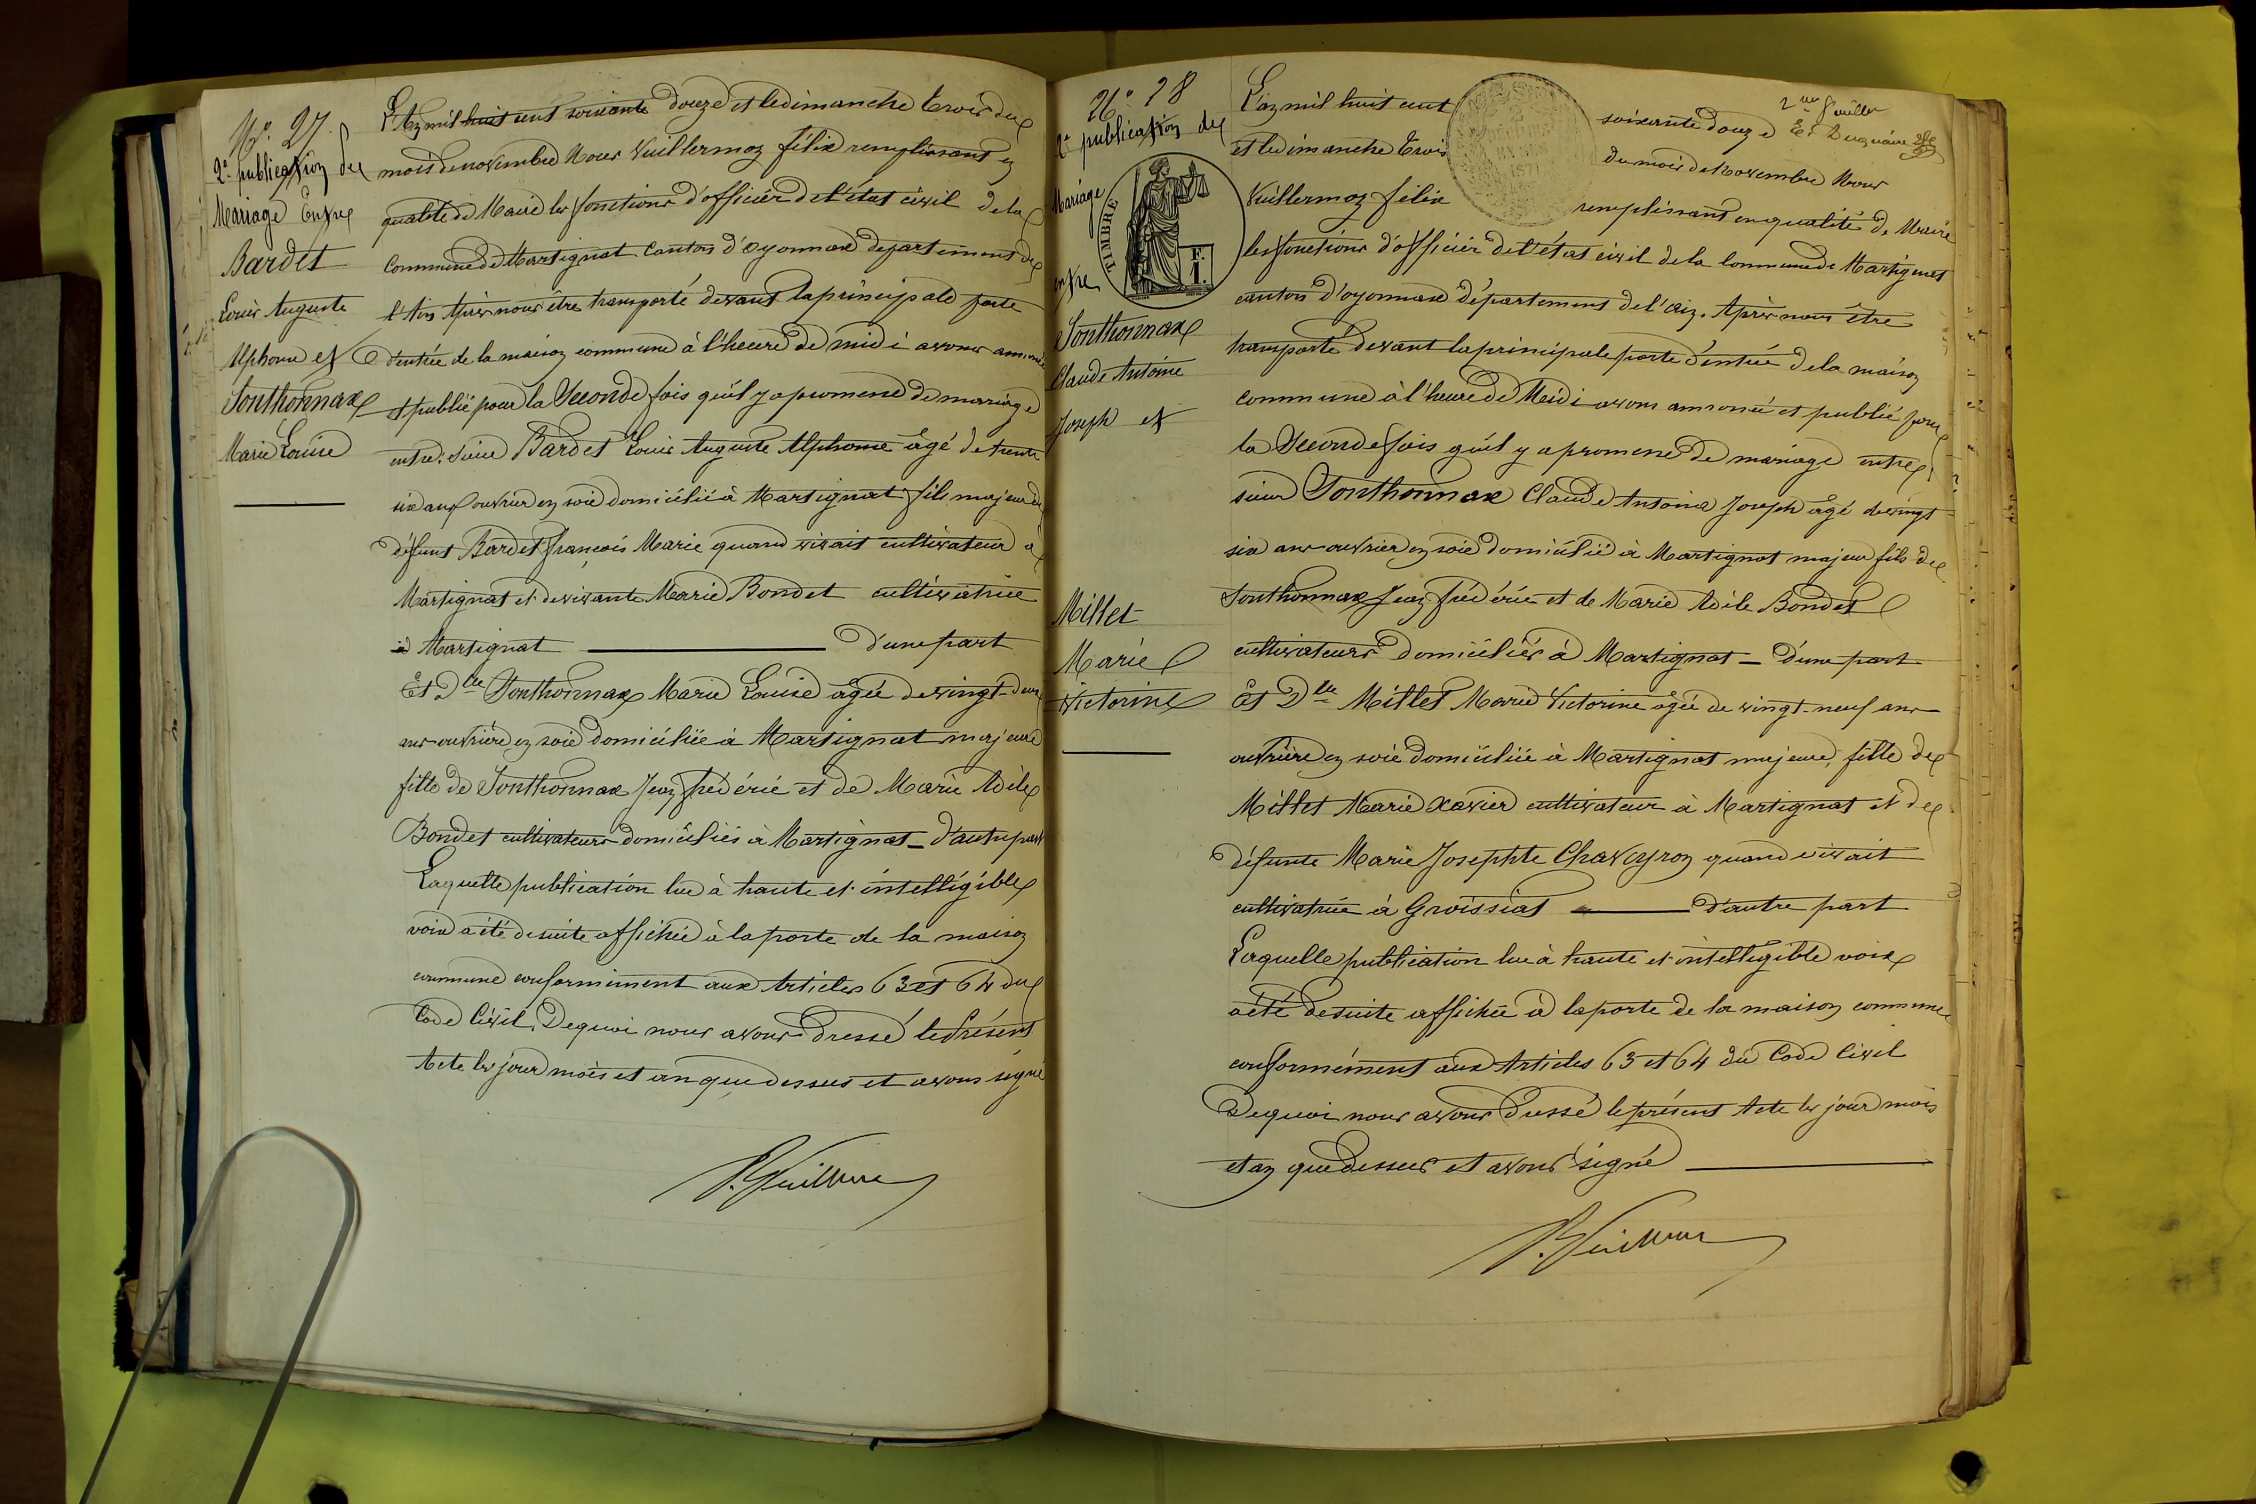 N° 27.
2e publication de
Mariage Entre
Bardet
Louis Auguste
Alphonse et
Sonthonnax
Marie Louise
L'An mil huit cent soixante douze et le dimanche trois du
mois de novembre Nous Vuillermoz félix remplissant en
qualité de Maire les fonctions d'officier de l'état civil de la
Commune de Martignat Canton d'oyonnax département de
l'Ain Après nous être transporté devant la principale porte
d'entrée de la maison commune à l'heure de midi avons annoncé
et publié pour la Seconde fois qu'il y a promene de mariage
entre: sieur Bardet Louis Auguste Alphonse âgé de trente
six ans ouvrier en soie domicilié à Martignat fils majeur de
défunt Bardet françois Marie quand vivait cultivateur à
Martignat et de vivante Marie Bondet cultivatrice
à Martignat d'une part
Et Dlle Sonthonnax Marie Louise âgée de vingt-deux
ans ouvrière en soie domiciliée à Martignat majeure
fille de Sonthonnax Jean frédéric et de Marie Adèle
Bondet cultivateurs domiciliés à Martignat - d'autre part
Laquelle publication lue à haute et intelligible
voix a été de suite affichée à la porte de la maison
commune conformément aux Articles 63 et 64 du
Code Civil. De quoi nous avons dressé le présent
Acte les jour mois et an que dessus et avons signé
N° 28
2e publication de
Mariage
entre
Sonthonnax
Claude Antoine
Joseph et
Millet
Marie
Victorine
TIMBRE
F.
1.
2me feuillet
L'an mil huit cent soixante douze
et le dimanche trois du mois de Novembre Nous
Vuillermoz félix remplissant en qualité de Maire
les fonctions d'officier de l'état civil de la Commune de Martignat
canton d'oyonnax département de l'ain. Après nous être
transporté devant la principale porte d'entrée de la maison
commune à l'heure de Midi avons annoncé et publié pour
la Seconde fois qu'il y a promene de mariage entre
sieur Sonthonnax Claude Antoine Joseph âgé de vingt
six ans ouvrier en soie domicilié à Martignat majeur fils de
Sonthonnax Jean frédéric et de Marie Adèle Bondet
cultivateurs domiciliés à Martignat - d'une part
Et Dlle Millet Marie Victorine âgée de vingt-neuf ans
ouvrière en soie domiciliée à Martignat majeure, fille de
Millet Marie Xavier cultivateur à Martignat et de
défunte Marie Josephte Chaveyron quand vivait
cultivatrice à Groissiat d'autre part
Laquelle publication lue à haute et intelligible voix
a été de suite affichée à la porte de la maison commune
conformément aux Articles 63 et 64 du Code Civil
De quoi nous avons dressé le présent Acte les jour mois
et an que dessus et avons signé